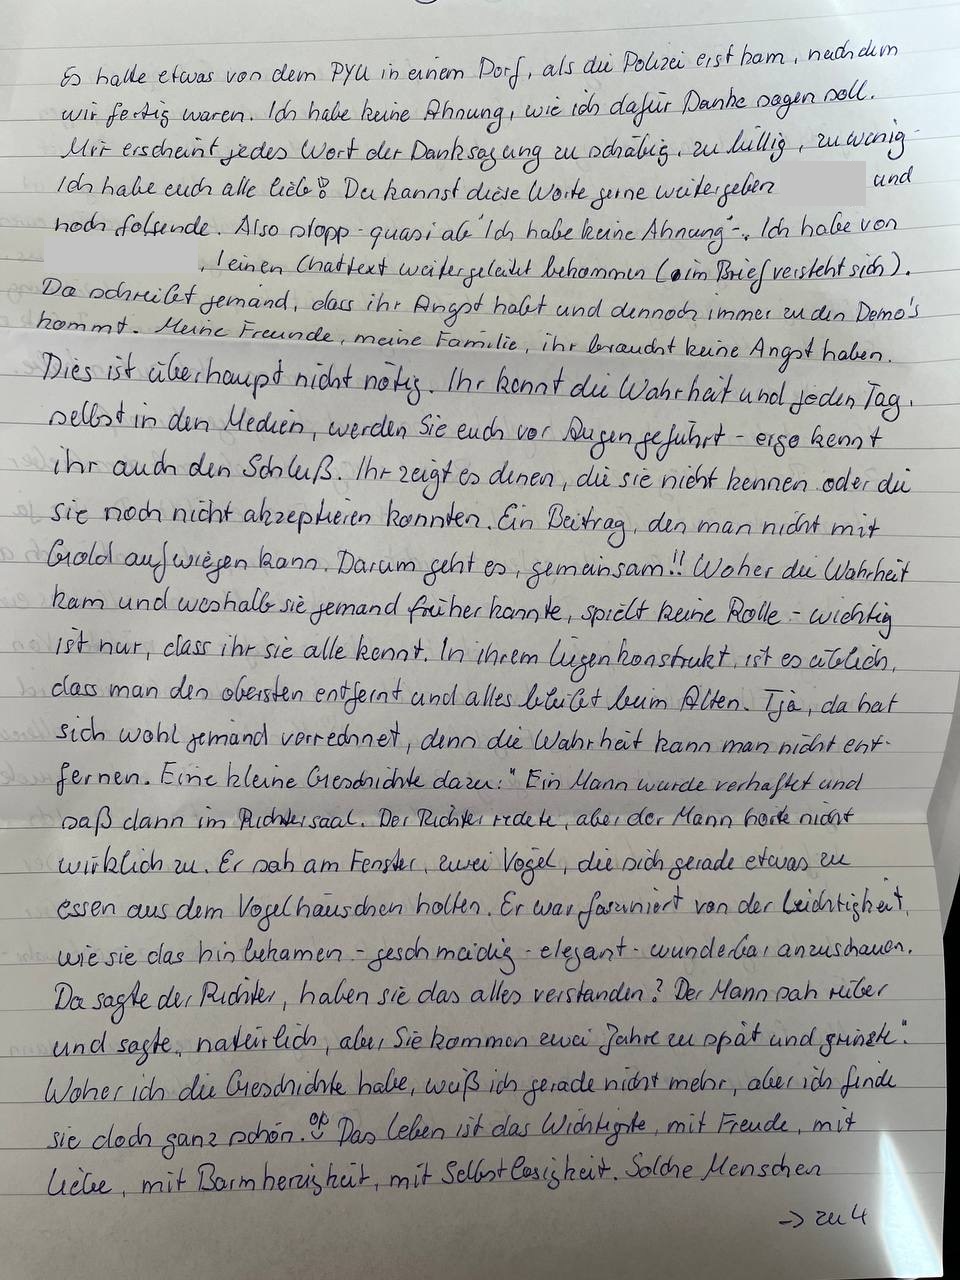 Es hatte etwas von dem PYU in einem Dorf, als die Polizei erst kam, nachdem
wir fertig waren. Ich habe keine Ahnung, wie ich dafür Danke sagen soll.
Mir erscheint jedes Wort der Danksagung zu schäbig, zu billig, zu wenig -
Ich habe euch alle lieb! Du kannst diese Worte gerne weitergeben und
noch folgende. Also stopp - quasi ab "Ich habe keine Ahnung" -. Ich habe von
, ! einen Chattext weitergeleitet bekommen (im Brief versteht sich).
Da schreibt jemand, dass ihr Angst habt und dennoch immer zu den Demo's
kommt. Meine Freunde, meine Familie, ihr braucht keine Angst haben.
Dies ist überhaupt nicht nötig. Ihr kennt die Wahrheit und jeden Tag,
selbst in den Medien, werden Sie euch vor Augen geführt - ergo kennt
ihr auch den Schluß. Ihr zeigt es denen, die sie nicht kennen oder die
sie noch nicht akzeptieren konnten. Ein Beitrag, den man nicht mit
Gold aufwiegen kann. Darum geht es, gemeinsam!! Woher die Wahrheit
kam und weshalb sie jemand früher kannte, spielt keine Rolle - wichtig
ist nur, dass ihr sie alle kennt. In ihrem Lügenkonstrukt, ist es üblich,
dass man den obersten entfernt und alles bleibt beim Alten. Tja, da hat
sich wohl jemand verrechnet, denn die Wahrheit kann man nicht ent-
fernen. Eine kleine Geschichte dazu: "Ein Mann wurde verhaftet und
saß dann im Richtersaal. Der Richter redete, aber der Mann hörte nicht
wirklich zu. Er sah am Fenster, zwei Vögel, die sich gerade etwas zu
essen aus dem Vogelhäuschen holten. Er war fasziniert von der Leichtigkeit,
wie sie das hinbekamen - geschmeidig - elegant - wunderbar anzuschauen.
Da sagte der Richter, haben sie das alles verstanden? Der Mann sah rüber
und sagte, natürlich, aber Sie kommen zwei Jahre zu spät und grinste".
Woher ich die Geschichte habe, weiß ich gerade nicht mehr, aber ich finde
sie doch ganz schön. Das Leben ist das Wichtigste, mit Freude, mit
Liebe, mit Barmherzigkeit, mit Selbstlosigkeit. Solche Menschen
-> zu 4